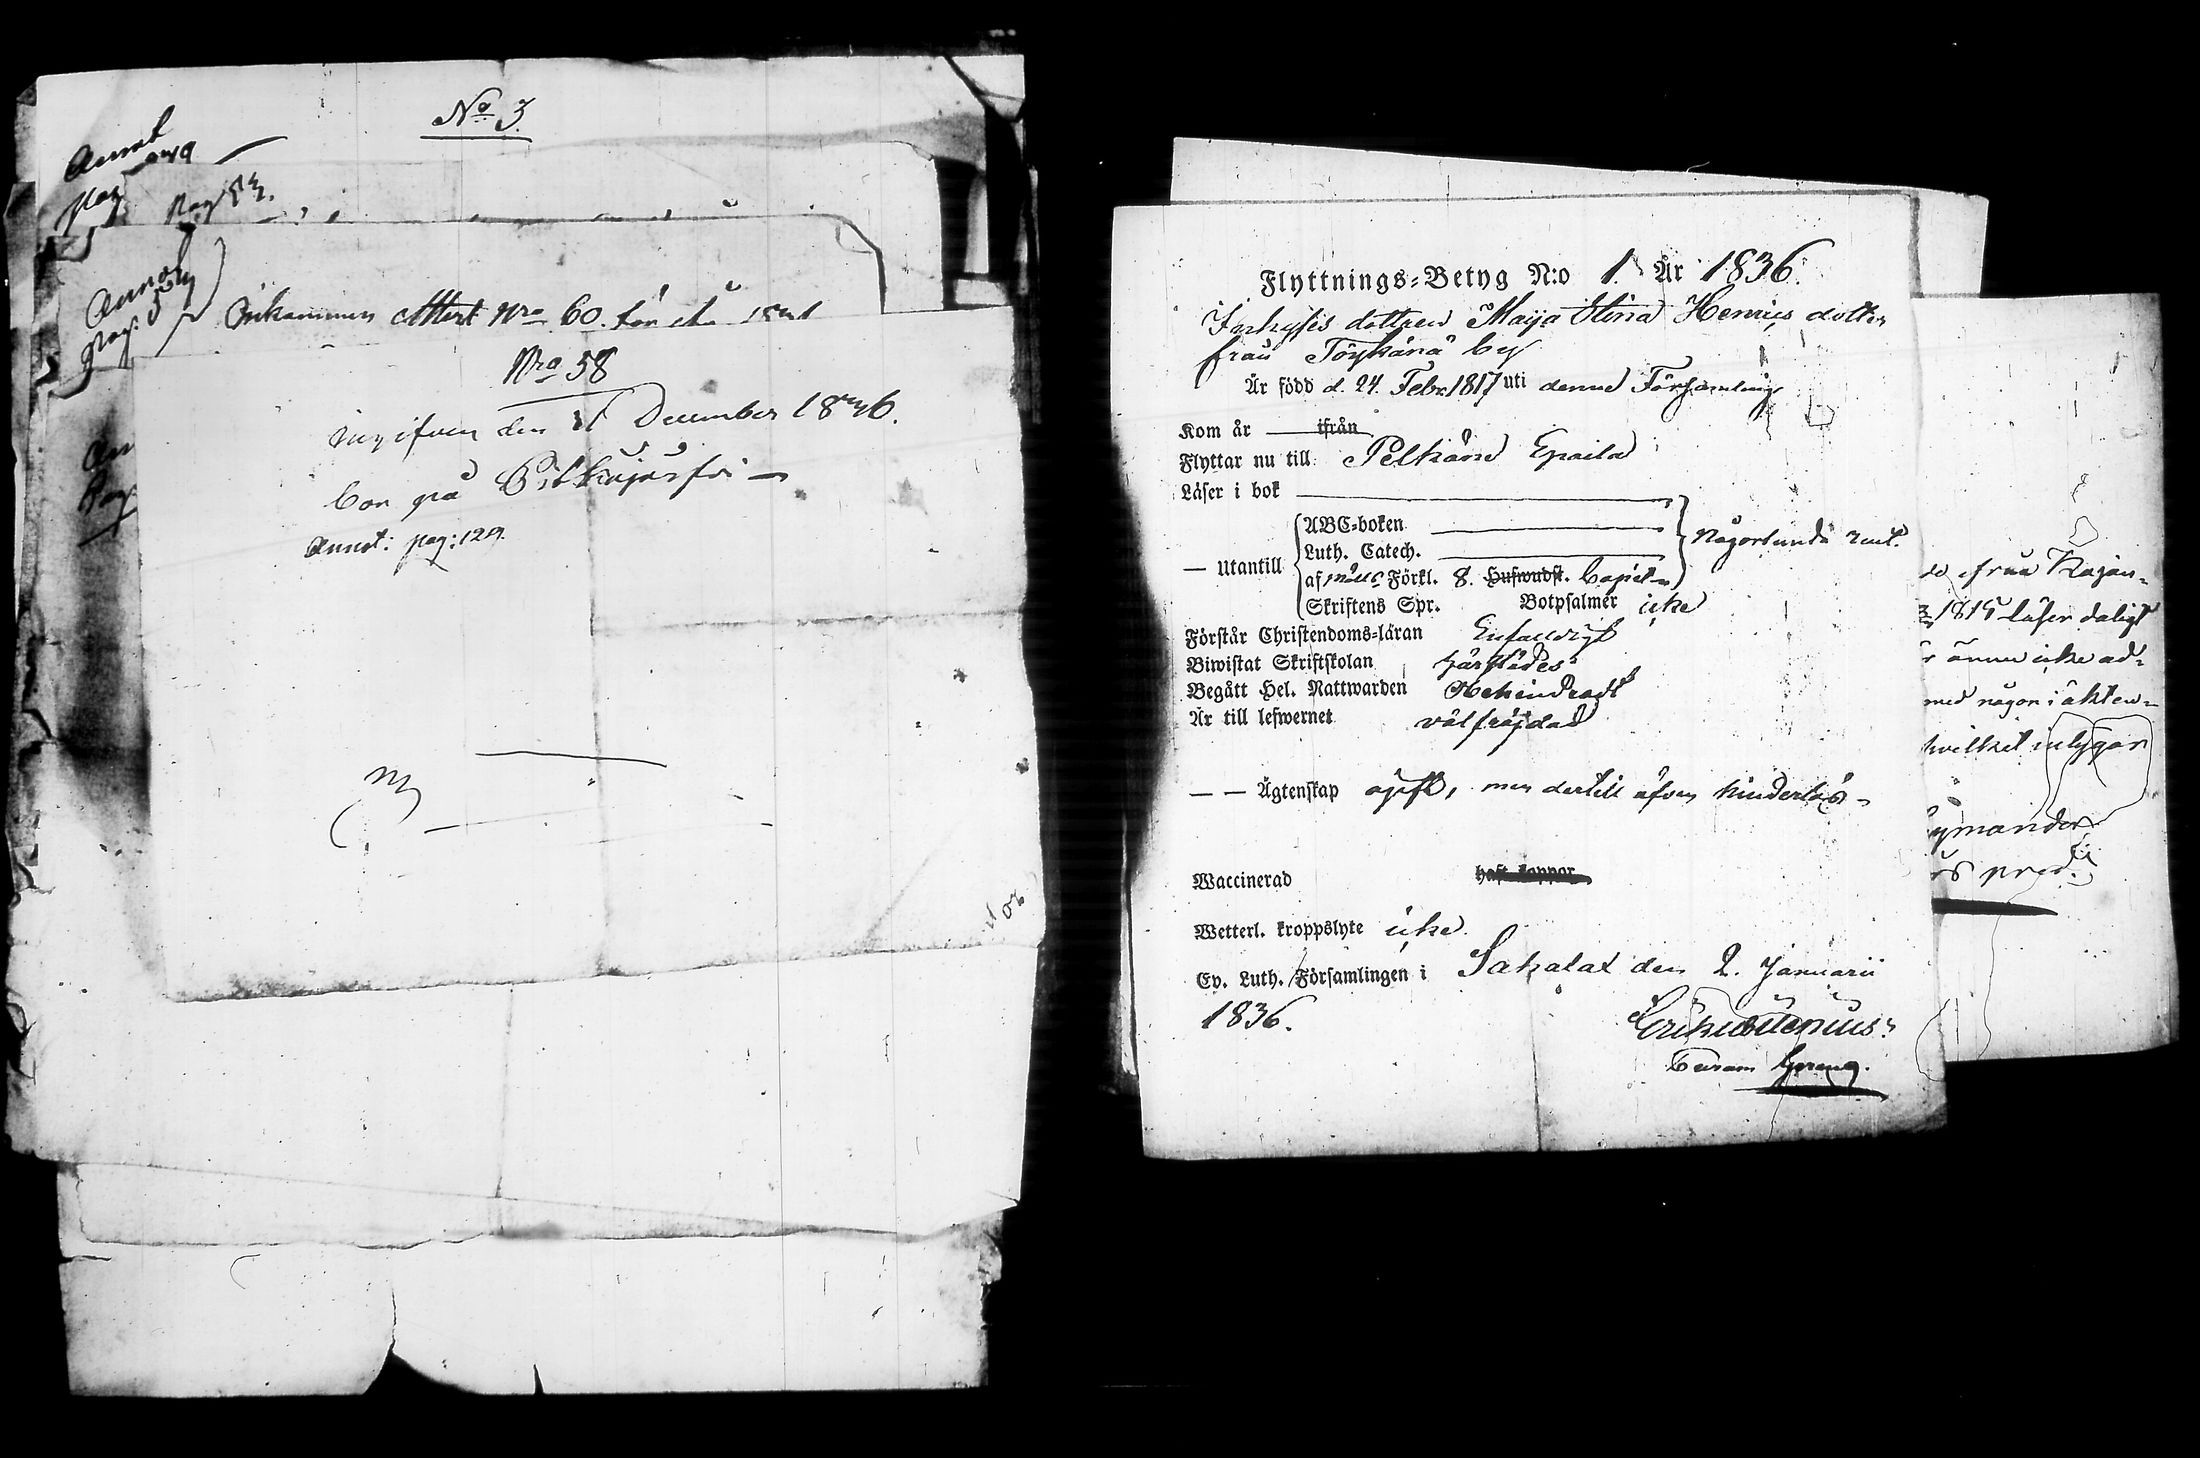 No 3
Annot
pag
Pag 83.
Annot
pag:
Inkommen Attest Nro 60. för
Nro 58
ingifven den December 1836.
bor på
Annot: pag: 129.
Flyttnings-Betyg N:o 1. År 1836.
Inhyses dottren Maija Stina Henrics dotter
från Töyhänä by
Är född d. 24. Febr. 1817 uti denne Församling
Kom år ifrån
Flyttar nu till Pelkäne Epaila
Läser i bok
ABC-boken
Någorlunda rent.
Luth. Catech.
— Utantill
af Förkl. 8. Hufwudst. Capit
Skriftens Spr. Botpsalmer icke
Förstår Christendoms-läran Enfalldigt
Biwistat Skriftskolan härstädes
Begått Hel. Nattwarden Obehindradt
Är till lefwernet välfräjdad
— — Ägtenskap ogift, men dertill äfven hinderlös
Waccinerad haft koppor
Wetterl. kroppslyte icke
Ev. Luth. Församlingen i Sahalax den 2. Januarii
1836.
från Kajan-
1815 Läser daligt
ännu icke ad-
med någon i äkten-
hvilket intygar